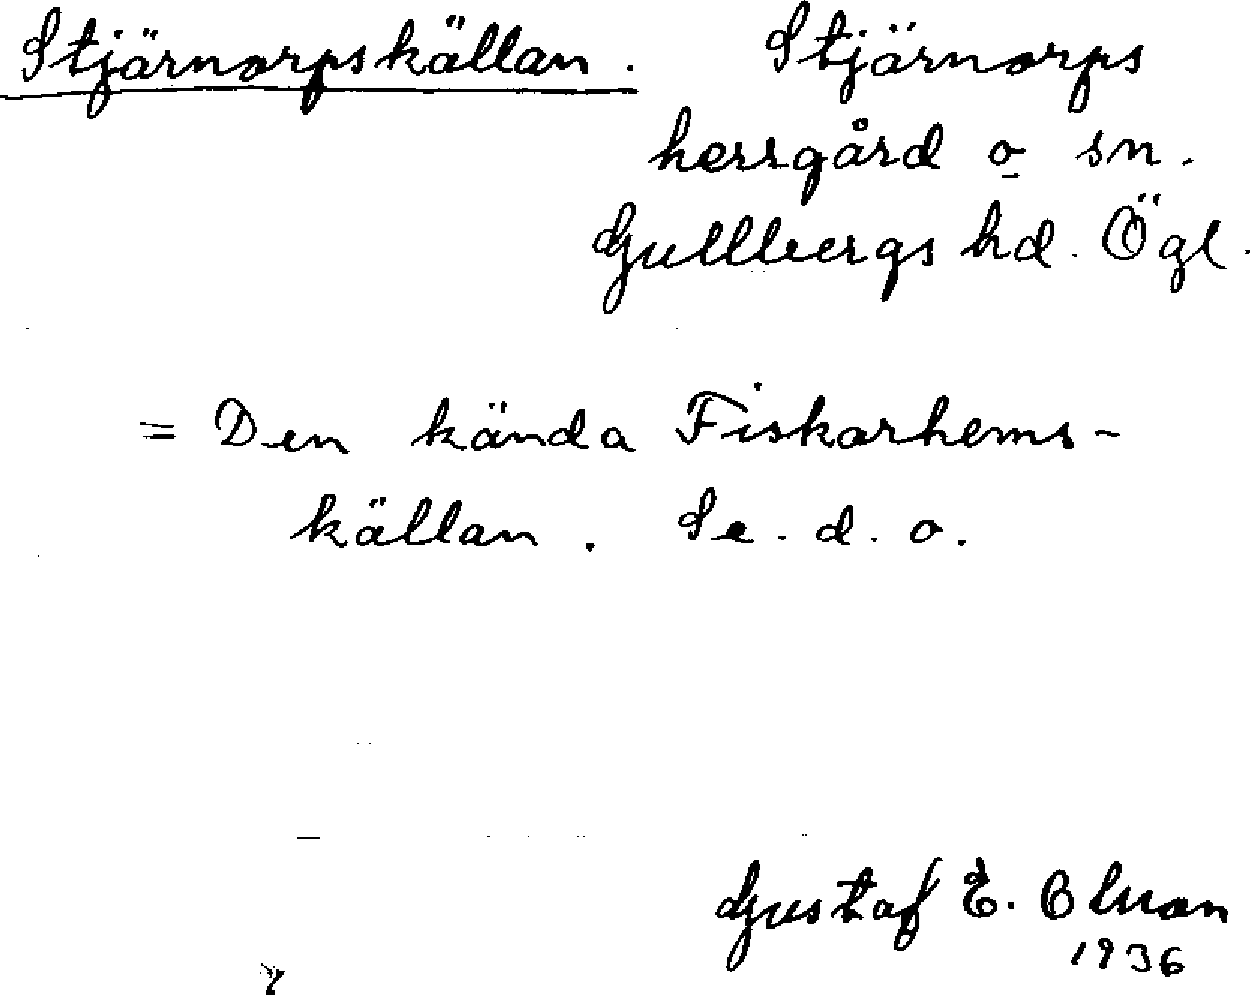 Stjärnorpskällan. Stjärnorps
herrgård o sn.
Gullbergs hd. Ögl.
= Den kända Fiskarhems-
källan. Se. d. o.
Gustaf E. Olsson
1936